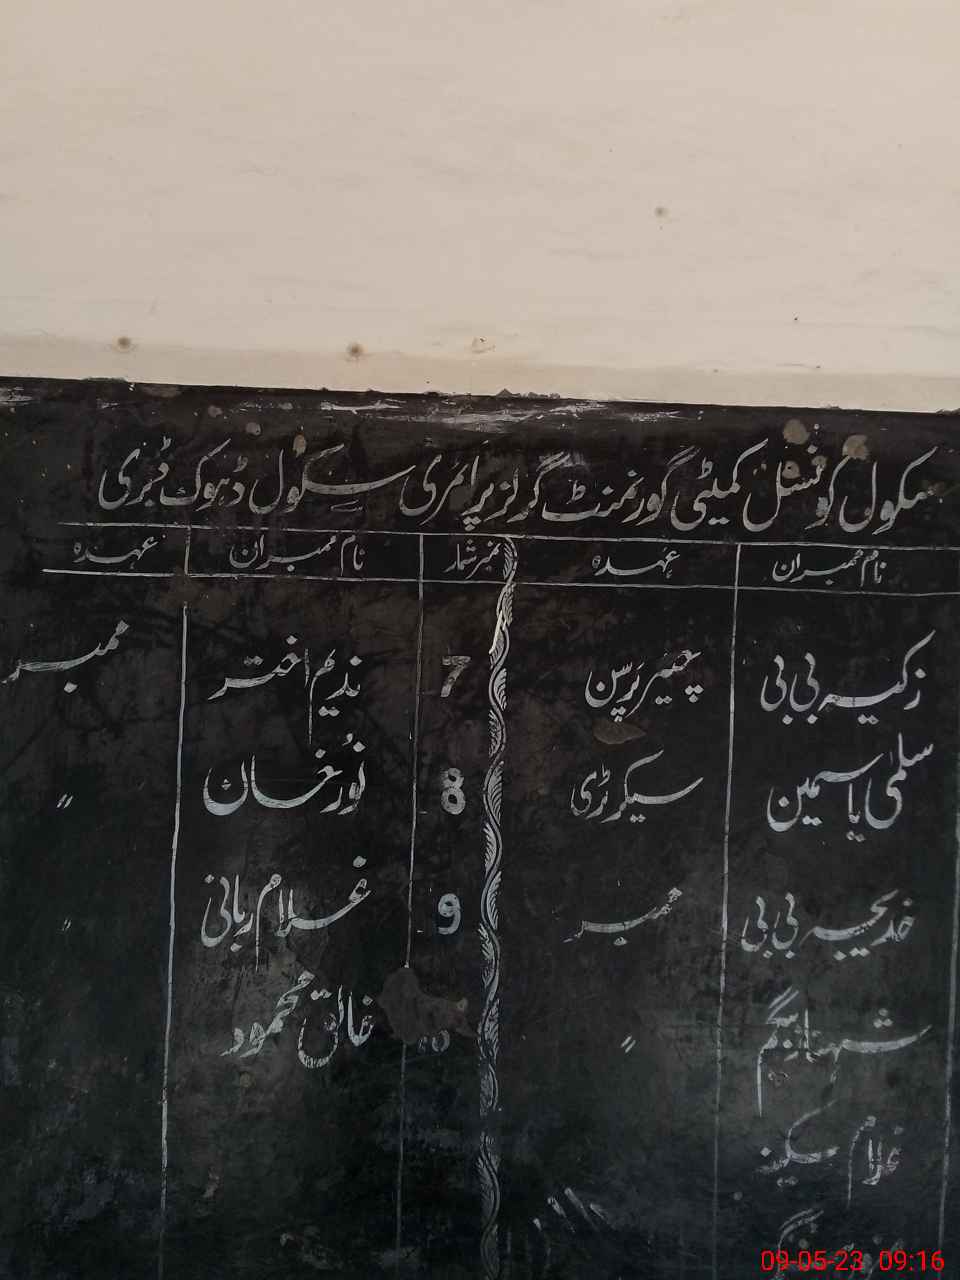 سکول کونسل کمیٹی گورنمنٹ گرلز پرائمری سکول ڈہوک ڈبری
نام ممبران عہدہ نمبر شمار نام ممبران عہدہ
زکیہ بی بی چیئر پرسن 7 ندیم اختر ممبر
سلمیٰ یاسمین سیکرٹری 8 نور خان 〃
خدیجہ بی بی ممبر 9 غلام ربانی 〃
شہناز بیگم 〃 10 خالق محمود
غلام سکینہ
09-05-23 09:16